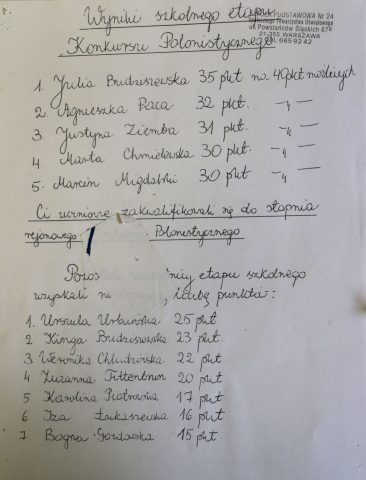 Wyniki szkolnego etapu
PODSTAWOWA Nr 24
ul. Powstańców Śląskich 67
01-355 WARSZAWA
TEL. 665 92 42
Konkursu Polonistycznego
1. Julia Budziszewska 35 pkt na 40 pkt możliwych
2. Agnieszka Raca 32 pkt. -"-
3. Justyna Ziemba 31 pkt. -"-
4. Marta Chmielewska 30 pkt -"-
5. Marcin Migdalski 30 pkt -"-
Ci uczniowie zakwalifikowali się do stopnia
rejonowego Polonistycznego
Pozos nicy etapu szkolnego
uzyskali liczbę punktów:
1. Urszula Urbańska 25 pkt
2 Kinga Budziszewska 23 pkt.
3 Weronika 22 pkt
4 Zuzanna 20 pkt
5. Karolina Piotrowska 17 pkt
6 Iza Łukaszewska 16 pkt
7 Bogna 15 pkt